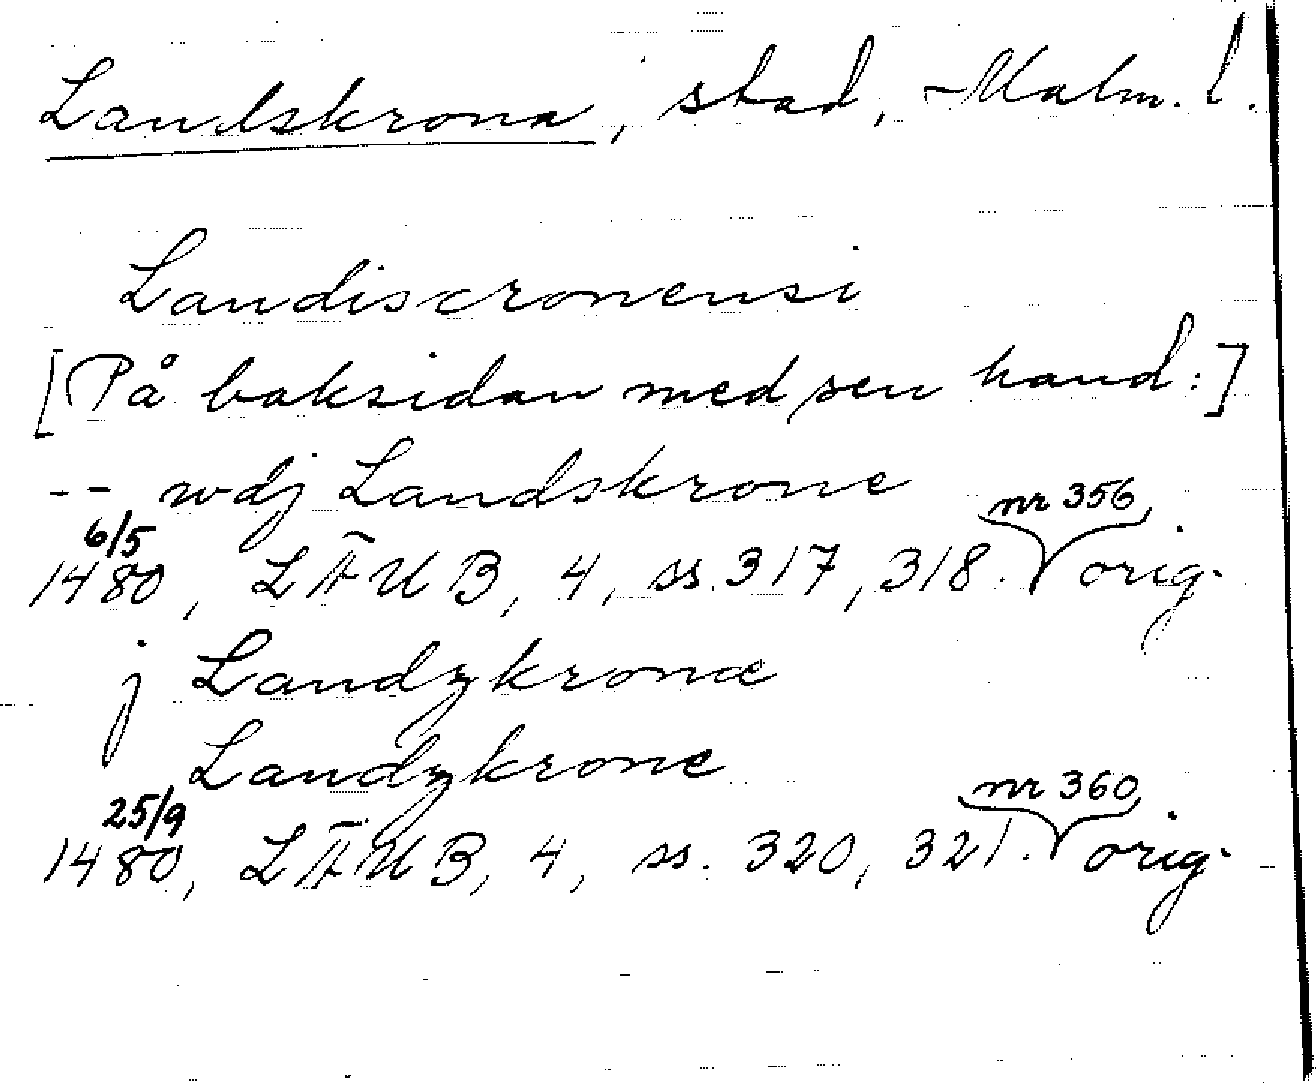 Landskrona, stad, Malm. l.
Landiscronensi
[På baksidan med sen hand:]
-- wdj Landskrone
6/5 1480, LÄUB, 4, ss. 317, 318. nr 356 orig.
j Landzkronæ
Landzkrone
25/9 1480, LÄUB, 4, ss. 320, 321. nr 360 orig.